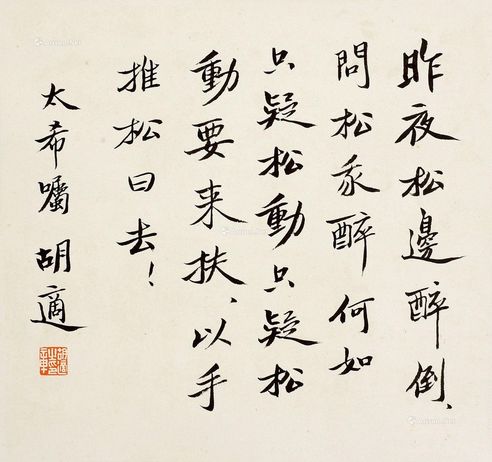 昨夜松邊醉倒、
問松我醉何如
只疑松動只疑松
動要来扶、以手
推松曰去！
太希囑 胡適